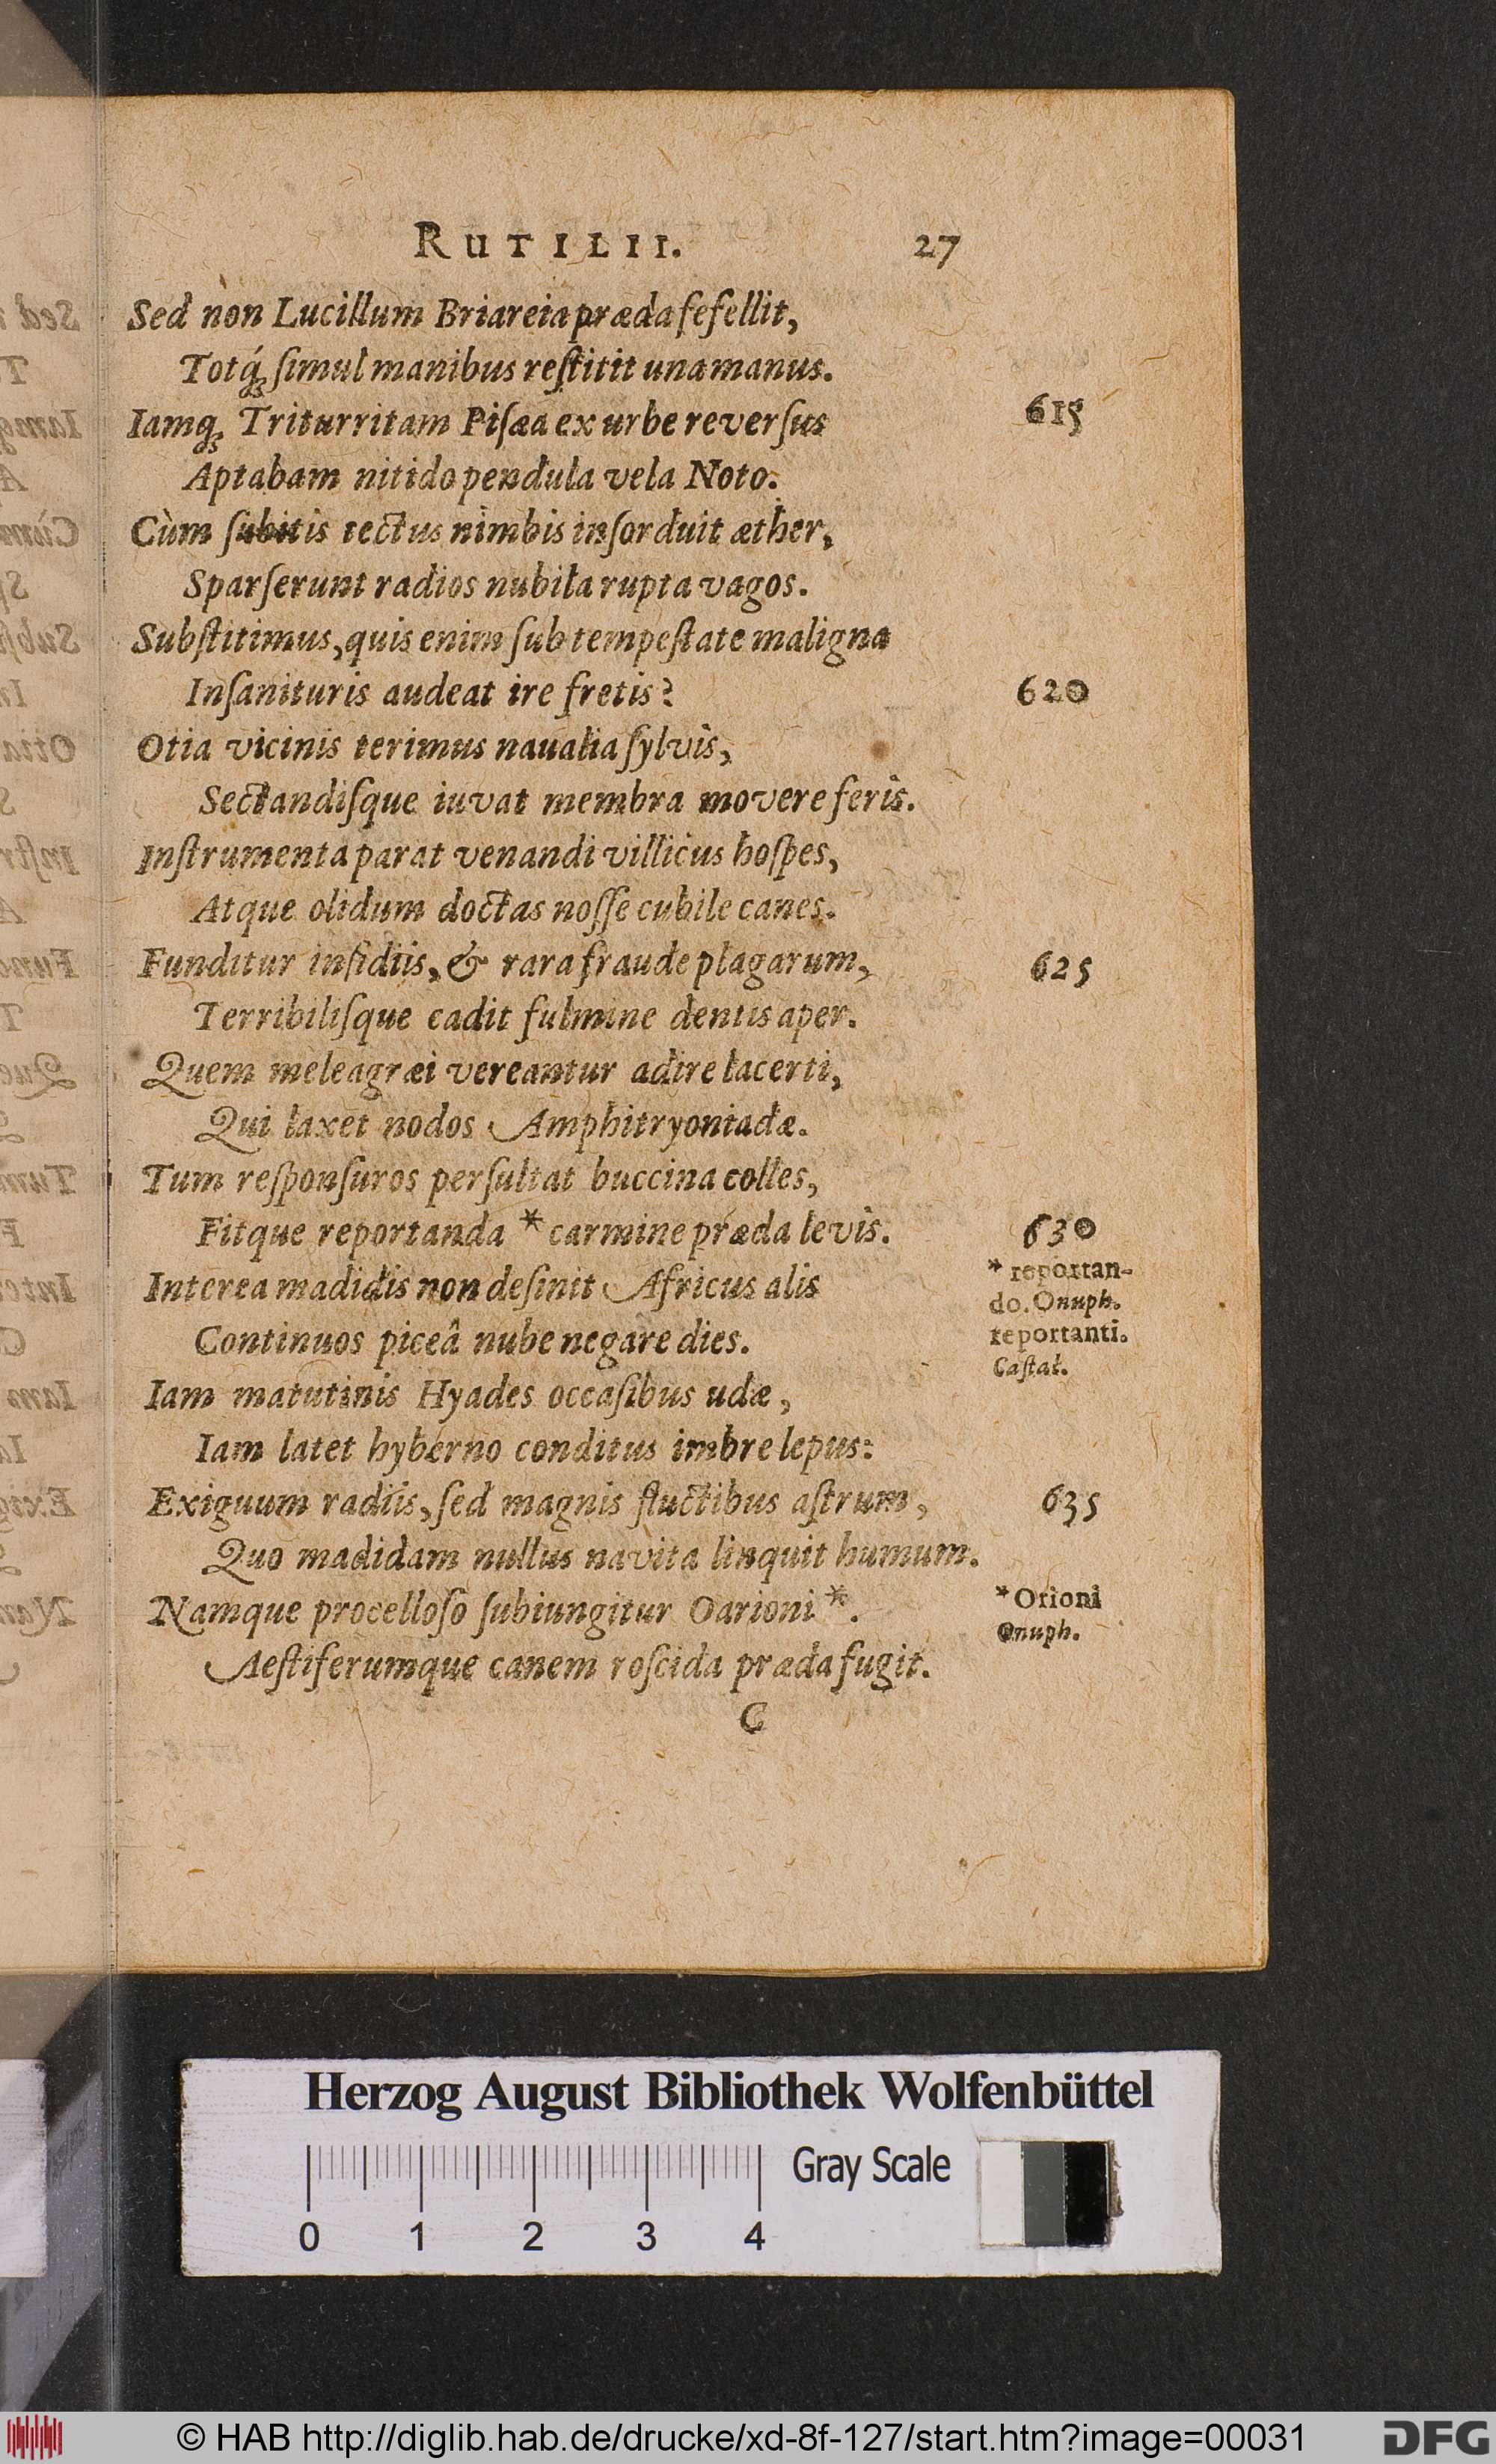 RUTILII. 27
Sed non Lucillum Briareia præda fefellit,
Totq́; ſimul manibus reſtitit una manus.
Iamq; Triturritam Piſæa ex urbe reverſus 615
Aptabam nitido pendula vela Noto.
Cùm ſubitis tectus nimbis inſorduit æther,
Sparſerunt radios nubila rupta vagos.
Subſtitimus, quis enim ſub tempeſtate maligna
Inſanituris audeat ire fretis? 620
Otia vicinis terimus naualia ſylvis,
Sectandiſque iuvat membra movere feris.
Inſtrumenta parat venandi villicus hoſpes,
Atque olidum doctas noſſe cubile canes.
Funditur inſidiis, & rara fraude plagarum, 625
Terribiliſque cadit fulmine dentis aper.
Quem meleagræi vereantur adire lacerti,
Qui laxet nodos Amphitryoniadæ.
Tum reſponſuros perſultat buccina colles,
Fitque reportanda * carmine præda levis. 630
* reportan-
do. Onuph.
reportanti.
Caſtal.
Interea madidis non deſinit Africus alis
Continuos piceâ nube negare dies.
Iam matutinis Hyades occaſibus udæ,
Iam latet hyberno conditus imbre lepus:
Exiguum radiis, ſed magnis fluctibus aſtrum, 635
Quo madidam nullus navita linquit humum.
Namque procelloſo ſubiungitur Oarioni *.
* Orioni
Onuph.
Aeſtiferumque canem roſcida præda fugit.
C
Herzog August Bibliothek Wolfenbüttel
Gray Scale
0 1 2 3 4
© HAB http://diglib.hab.de/drucke/xd-8f-127/start.htm?image=00031
DFG